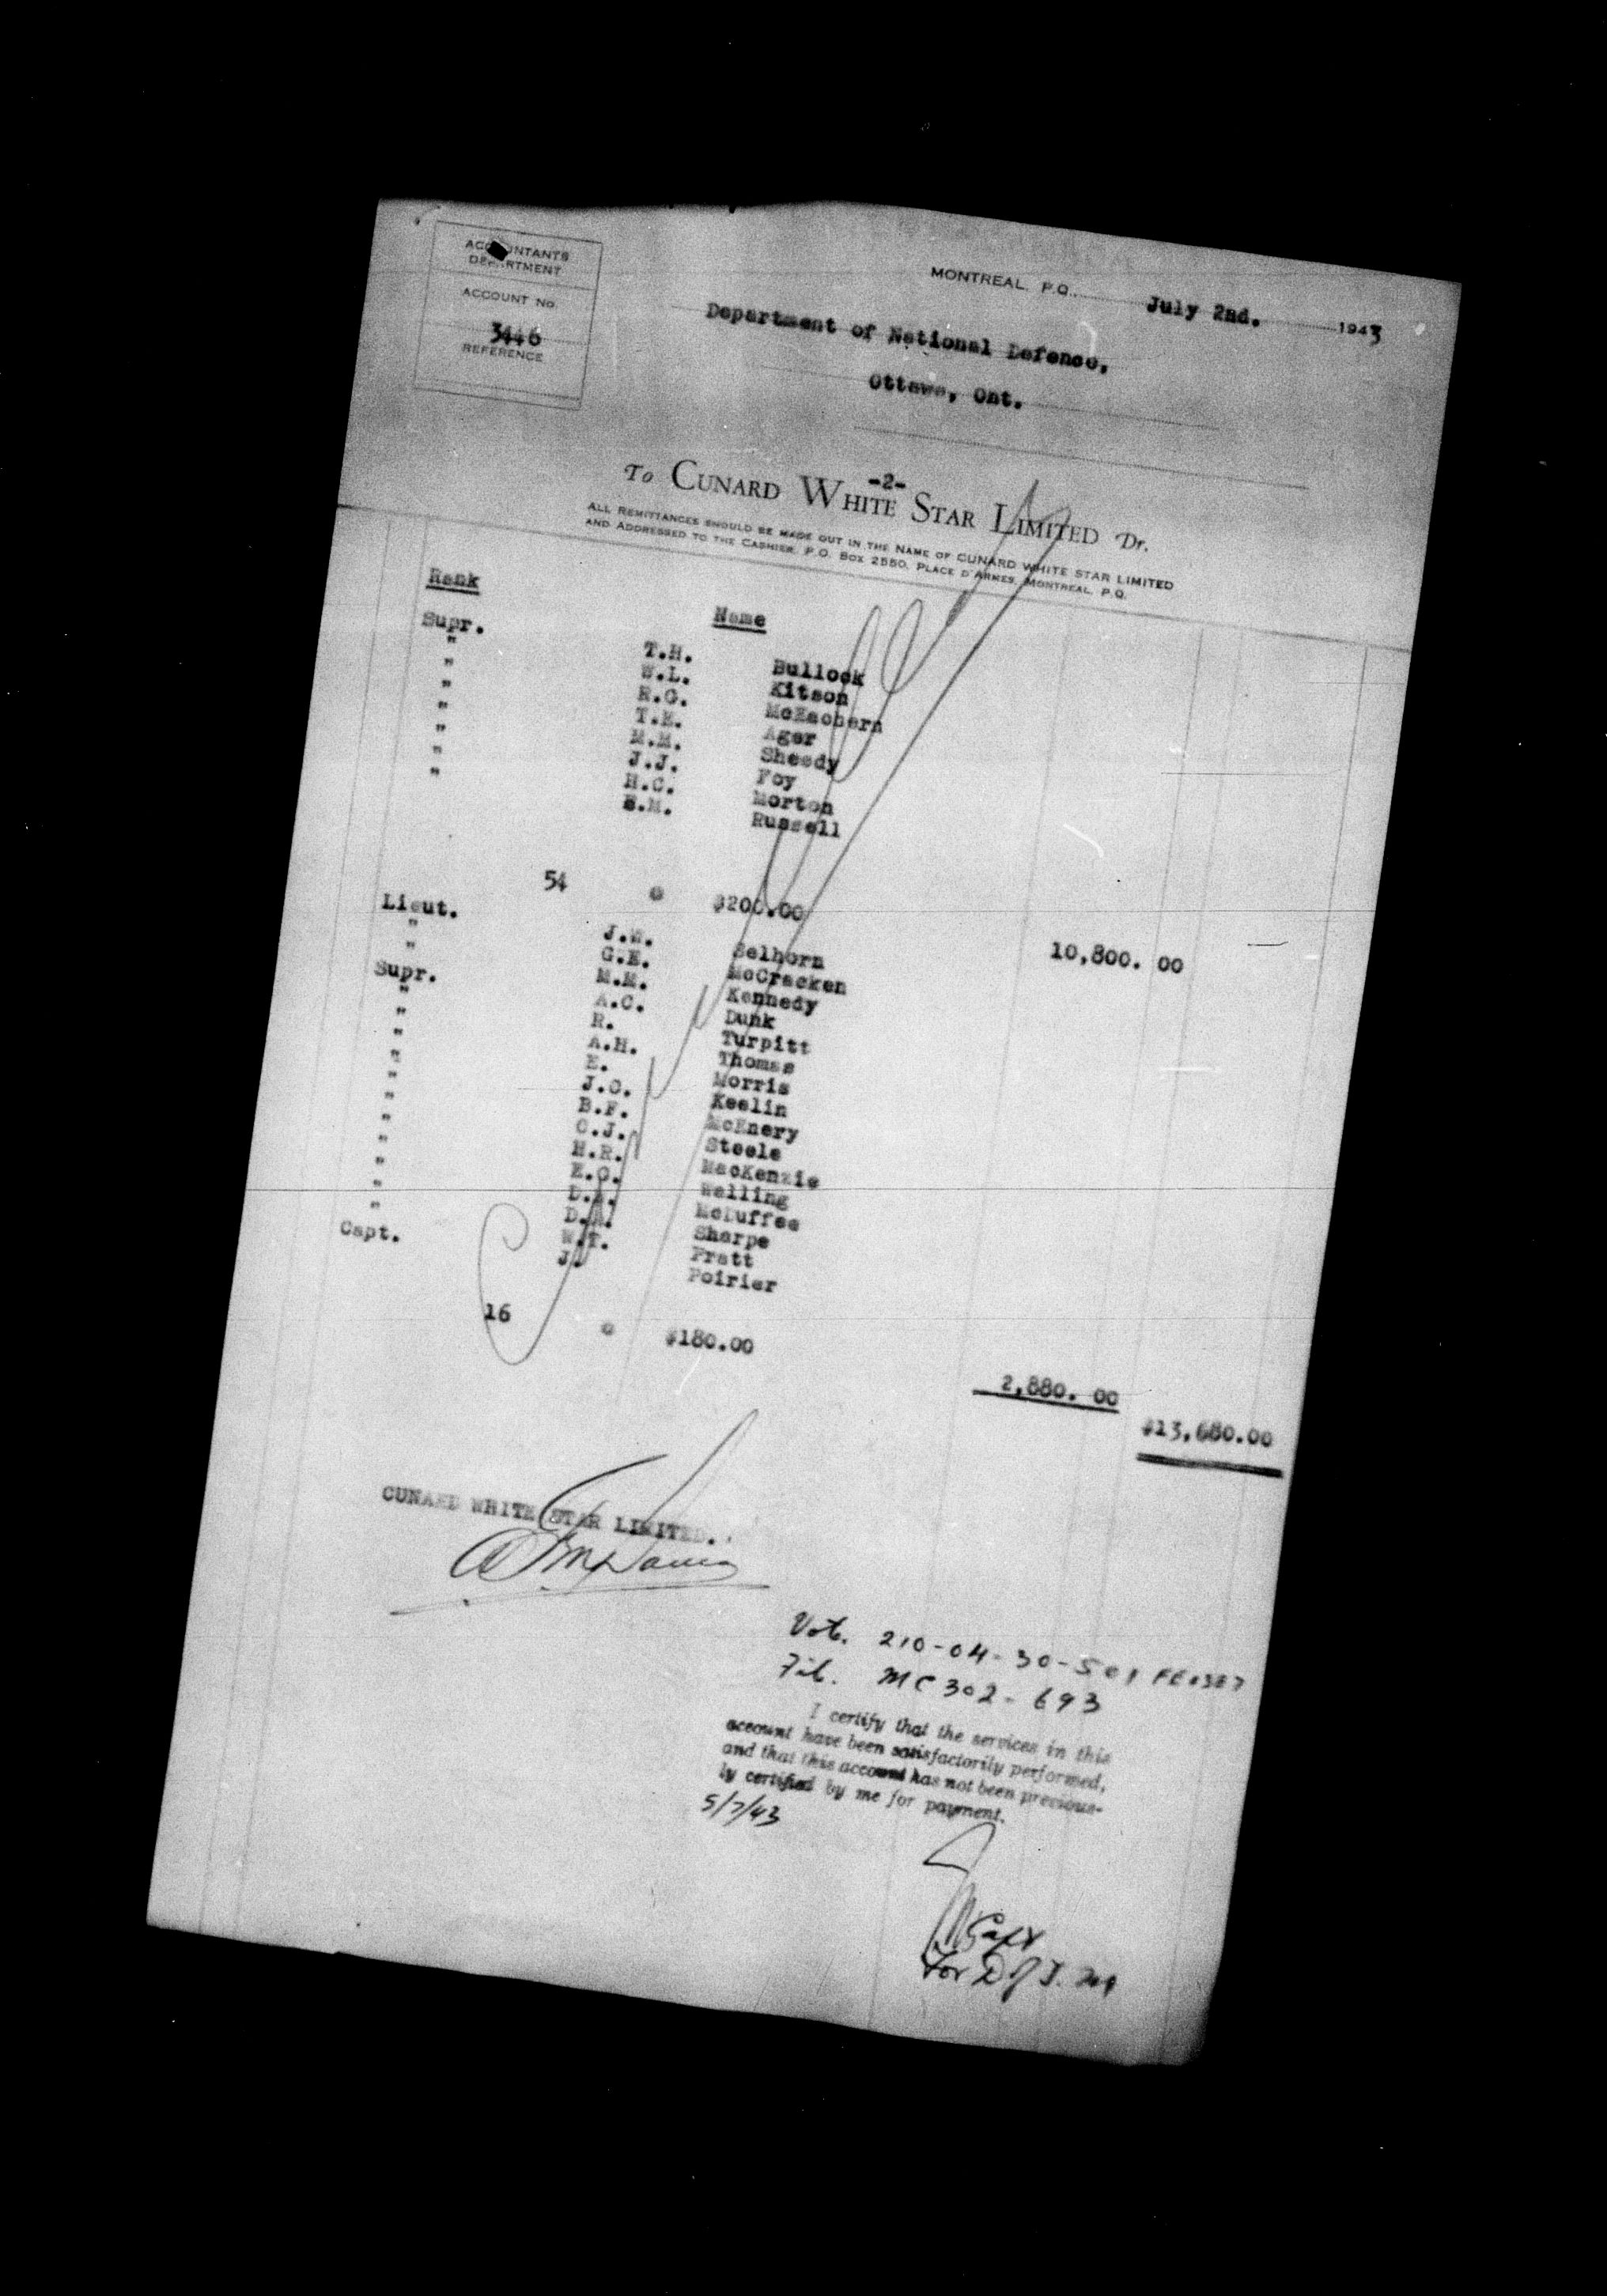 ACCOUNTANTS
DEPARTMENT
ACCOUNT No.
3446
REFERENCE
MONTREAL, P.Q., July 2nd. 1943
Department of National Defence,
Ottawa, Ont.
-2-
To CUNARD WHITE STAR LIMITED Dr.
ALL REMITTANCES SHOULD BE MADE OUT IN THE NAME OF CUNARD WHITE STAR LIMITED
AND ADDRESSED TO THE CASHIER, P.O. BOX 2550, PLACE D'ARMES, MONTREAL, P.Q.
Rank Name
Supr. T.H. Bullock
" W.L. Kitson
" R.G. McEachern
" T.E. Ager
" M.M. Sheedy
" J.J. Foy
" H.C. Morton
" E.M. Russell
54 @ $200.00 10,800.00
Lieut. J.W. Selhorn
" G.E. McCracken
" M.M. Kennedy
Supr. A.C. Dunk
" R. Turpitt
" A.H. Thomas
" E. Morris
" J.O. Keelin
" B.F. McEnery
" C.J. Steele
" H.R. MacKenzie
" E.G. Welling
" D.A. McDuffee
" D.A. Sharpe
" W.T. Pratt
Capt. J. Poirier
16 @ $180.00 2,880.00
$13,680.00
CUNARD WHITE STAR LIMITED.
Vote. 210-04-30-501 FE 0387
File. MC 302-693
I certify that the services in this
account have been satisfactorily performed,
and that this account has not been previous-
ly certified by me for payment.
5/7/43
Capt
For D of